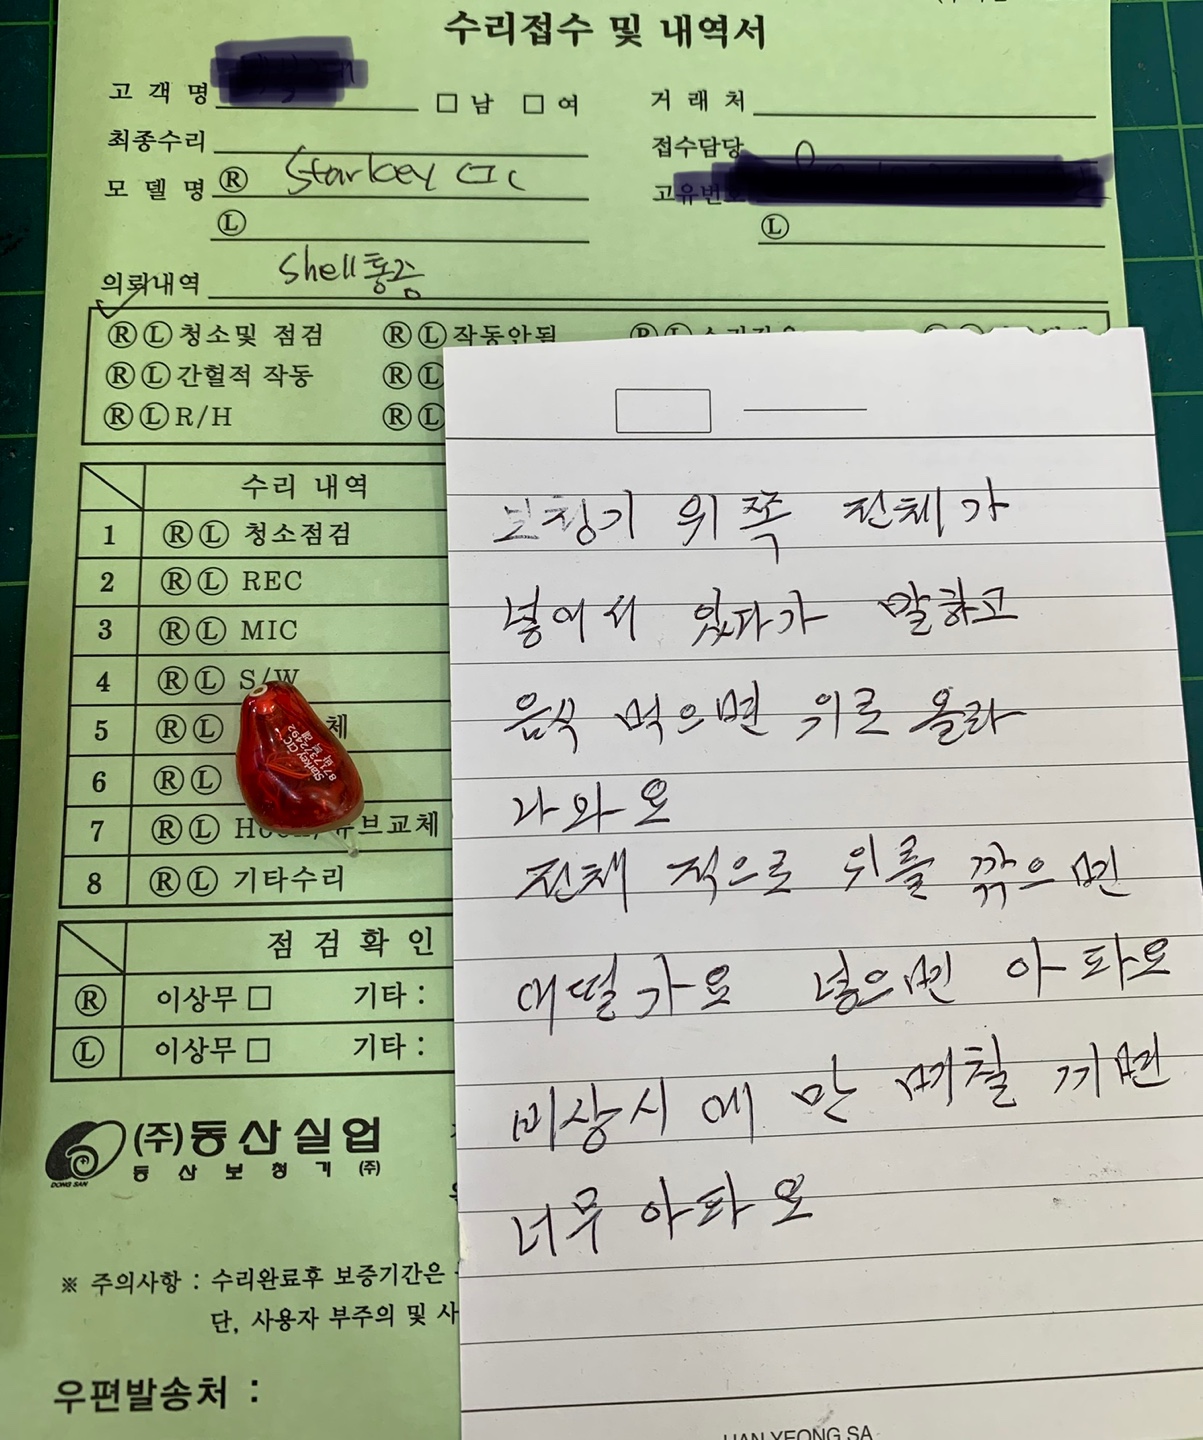 수리접수 및 내역서
고 객 명 □ 남 □ 여
거 래 처
최종수리
접수담당
모 델 명 Ⓡ Starkey CIC
고유번호
Ⓛ
Ⓛ
의뢰내역 Shell통증
Ⓡ Ⓛ 청소및 점검 Ⓡ Ⓛ 작동안됨 Ⓡ Ⓛ
Ⓡ Ⓛ 간헐적 작동 Ⓡ Ⓛ
Ⓡ Ⓛ R/H Ⓡ Ⓛ
수리 내역
1 Ⓡ Ⓛ 청소점검
2 Ⓡ Ⓛ REC
3 Ⓡ Ⓛ MIC
4 Ⓡ Ⓛ S/W
5 Ⓡ Ⓛ 체
6 Ⓡ Ⓛ
7 Ⓡ Ⓛ 튜브교체
8 Ⓡ Ⓛ 기타수리
Starkey CIC
점 검 확 인
Ⓡ 이상무 □ 기타 :
Ⓛ 이상무 □ 기타 :
DONG SAN
(주)동산실업
동 산 보 청 기 (주)
※ 주의사항 : 수리완료후 보증기간은
단, 사용자 부주의 및 사
우편발송처 :
보청기 위쪽 전체가
넣어서 있다가 말하고
음식 먹으면 위로 올라
나와요
전채 적으로 위를 깎으면
애떨가요 넣으면 아파요
비상시 에 만 며칠 끼면
너무 아파요
HAN YEONG SA